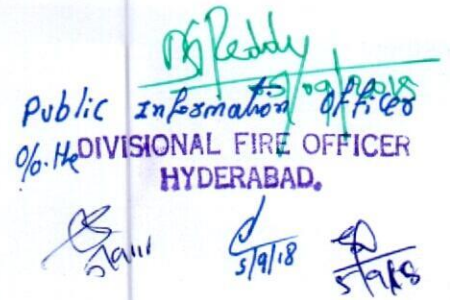 Reddy
5/09/2018
Public Information Officer
O/o. the DIVISIONAL FIRE OFFICER
HYDERABAD.
5/9/18 5/9/18